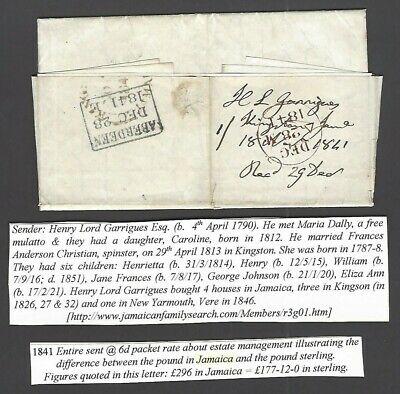 H L Garrigues
Kingston
1841
Recd 29 Dec
ABERDEEN
DEC 28
1841
DEC
1841
Sender: Henry Lord Garrigues Esq. (b. 4th April 1790). He met Maria Dally, a free
mulatto & they had a daughter, Caroline, born in 1812. He married Frances
Anderson Christian, spinster, on 29th April 1813 in Kingston. She was born in 1787-8.
They had six children: Henrietta (b. 31/3/1814), Henry (b. 12/5/15), William (b.
7/9/16; d. 1851), Jane Frances (b. 7/8/17), George Johnson (b. 21/1/20), Eliza Ann
(b. 17/2/21). Henry Lord Garrigues bought 4 houses in Jamaica, three in Kingson (in
1826, 27 & 32) and one in New Yarmouth, Vere in 1846.
[http://www.jamaicanfamilysearch.com/Members/r3g01.htm]
1841 Entire sent @ 6d packet rate about estate management illustrating the
difference between the pound in Jamaica and the pound sterling.
Figures quoted in this letter: £296 in Jamaica = £177-12-0 in sterling.